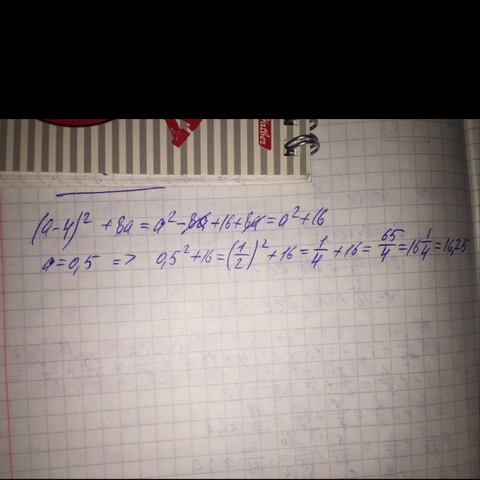 (a-4)² + 8a = a² - 8a + 16 + 8a = a² + 16
a = 0,5 => 0,5² + 16 = (1/2)² + 16 = 1/4 + 16 = 65/4 = 16 1/4 = 16,25